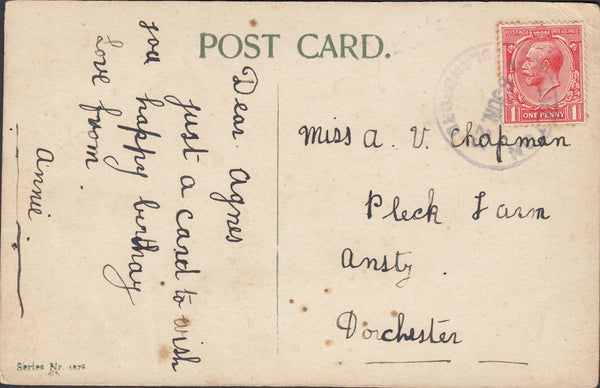 POST CARD.
Dear Agnes
just a card to wish
you happy birthay
Love from
Annie
POSTAGE REVENUE
1 ONE PENNY 1
Miss A. V. Chapman
Pleck Farm
Ansty.
Dorchester
Series Nr.